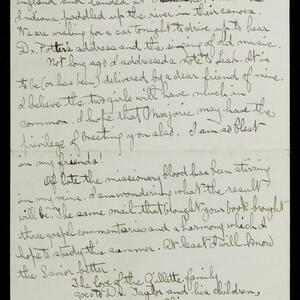 England and landed at
Indians paddled up the river in their canoes.
We are wishing for a car tonight to drive up to hear
Dr. Potter's address and the singing of old music.
Not long ago I addressed a note to Leah. It is
to be (or has been) delivered by a dear friend of mine.
I believe the two girls will have much in
common. I hope that Marjorie may have the
privilege of meeting you also. I am so blest
in my friends!
Of late the missionary blood has been stirring
in my veins. I am wondering what the result
will be. The same mail that brought your book brought
three gospel commentaries and a harmony which I
hope to study this summer. At least I will know
the Savior better.
The love of the Gillette family
goes to Dr. Taylor and his children,